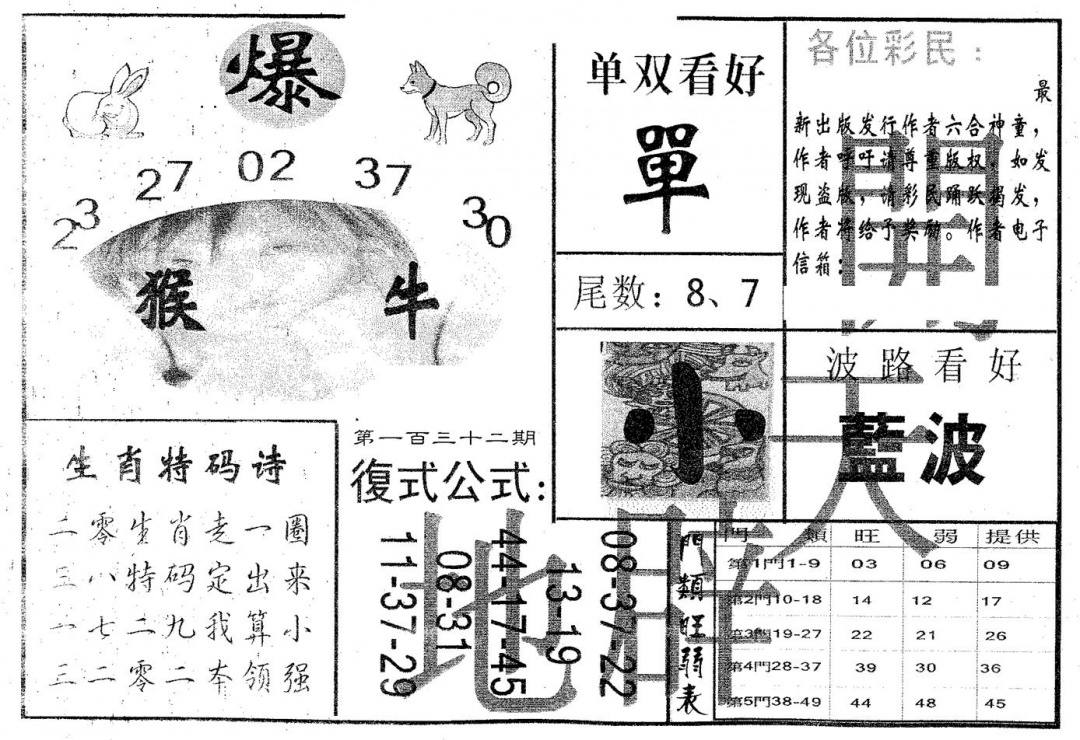 爆
23
27
02
37
30
猴
牛
单双看好
單
尾数：8、7
各位彩民：
最
新出版发行作者六合神童，
作者呼吁请尊重版权，如发
现盗版，请彩民踊跃揭发，
作者将给予奖励。作者电子
信箱：
小
波路看好
藍波
生肖特码诗
二零生肖走一圈
三八特码定出来
一七二九我算小
三二零二本领强
第一百三十二期
復式公式：
11-37-29
08-31
44-17-45
13-19
08-37-22
門類旺弱表
門類 旺 弱 提供
第1門1-9 03 06 09
第2門10-18 14 12 17
第3門19-27 22 21 26
第4門28-37 39 30 36
第5門38-49 44 48 45
地